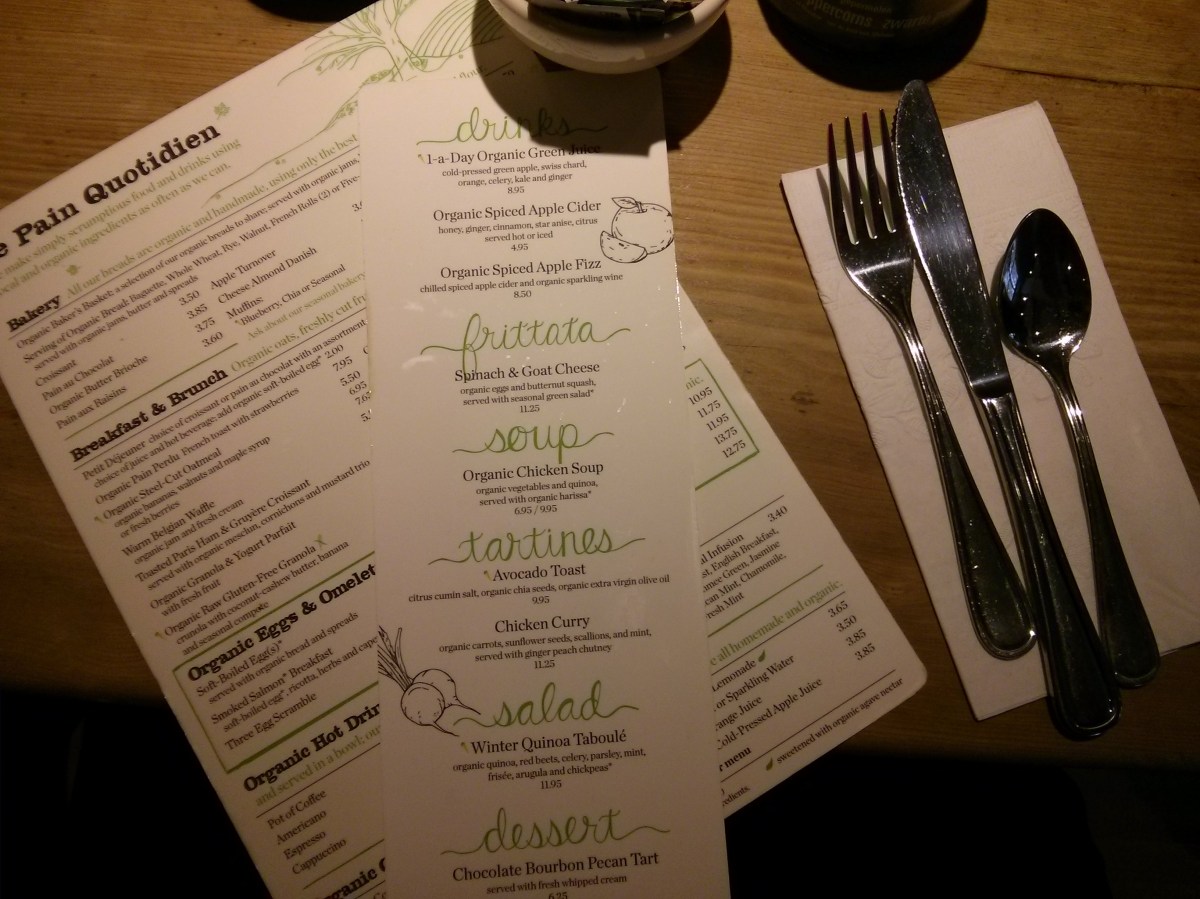 ppercorns zwarte
drinks
1-a-Day Organic Green Juice
cold-pressed green apple, swiss chard,
orange, celery, kale and ginger
8.95
Organic Spiced Apple Cider
honey, ginger, cinnamon, star anise, citrus
served hot or iced
4.95
Organic Spiced Apple Fizz
chilled spiced apple cider and organic sparkling wine
8.50
frittata
Spinach & Goat Cheese
organic eggs and butternut squash,
served with seasonal green salad*
11.25
soup
Organic Chicken Soup
organic vegetables and quinoa,
served with organic harissa*
6.95 / 9.95
tartines
Avocado Toast
citrus cumin salt, organic chia seeds, organic extra virgin olive oil
9.95
Chicken Curry
organic carrots, sunflower seeds, scallions, and mint,
served with ginger peach chutney
11.25
salad
Winter Quinoa Taboulé
organic quinoa, red beets, celery, parsley, mint,
frisée, arugula and chickpeas*
11.95
dessert
Chocolate Bourbon Pecan Tart
served with fresh whipped cream
6.25
e Pain Quotidien
make simply scrumptious food and drinks using
ocal and organic ingredients as often as we can.
Bakery All our breads are organic and handmade, using only the best
Organic Baker's Basket: a selection of our organic breads to share; served with organic jams,
Serving of Organic Bread: Baguette, Whole Wheat, Rye, Walnut, French Rolls (2) or Five-
served with organic jams, butter and spreads
Croissant 3.50
Pain au Chocolat 3.85
Organic Butter Brioche 3.75
Pain aux Raisins 3.60
Apple Turnover
Cheese Almond Danish
Muffins:
Blueberry, Chia or Seasonal
Ask about our seasonal bakery
Breakfast & Brunch Organic oats, freshly cut fru
Petit Déjeuner choice of croissant or pain au chocolat with an assortment
choice of juice and hot beverage; add organic soft-boiled egg* 2.00
Organic Pain Perdu French toast with strawberries 7.95
Organic Steel-Cut Oatmeal 5.50
organic bananas, walnuts and maple syrup 6.95
or fresh berries
Warm Belgian Waffle
organic jam and fresh cream
Toasted Paris Ham & Gruyère Croissant
served with organic mesclun, cornichons and mustard trio
Organic Granola & Yogurt Parfait
with fresh fruit
Organic Raw Gluten-Free Granola
crunola with coconut-cashew butter, banana
and seasonal compote
Organic Eggs & Omelet
Soft-Boiled Egg(s)*
served with organic bread and spreads
Smoked Salmon* Breakfast
soft-boiled egg*, ricotta, herbs and cape
Three Egg Scramble
Organic Hot Drin
and served in a bowl; ou
Pot of Coffee
Americano
Espresso
Cappuccino
rganic
nic.
10.95
11.75
11.95
13.75
12.75
al Infusion 3.40
st, English Breakfast,
Green, Jasmine
can Mint, Chamomile,
resh Mint
e all homemade and organic.
Lemonade 3.65
or Sparkling Water 3.50
range Juice 3.85
Cold-Pressed Apple Juice 3.85
r menu
sweetened with organic agave nectar
edients.